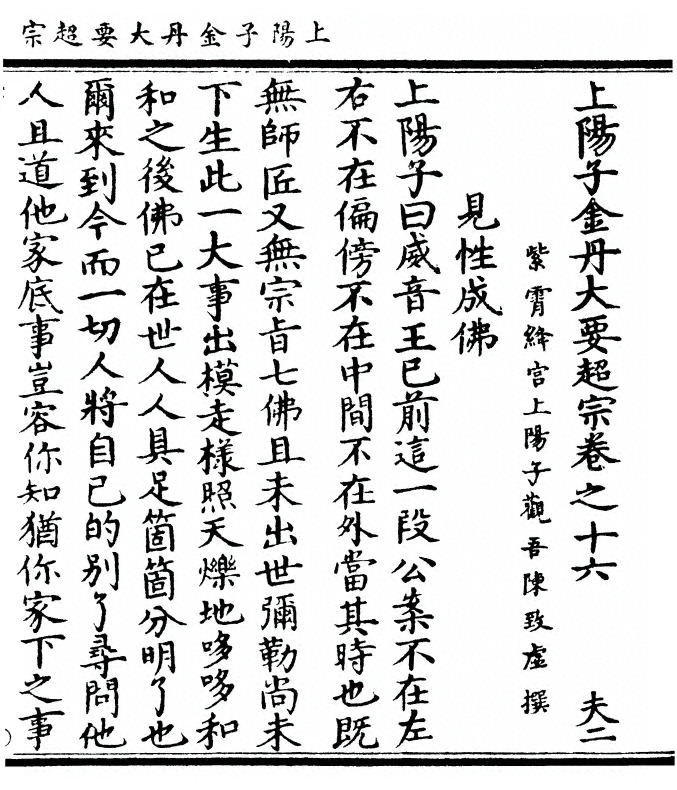 上陽子金丹大要超宗
上陽子金丹大要超宗卷之十六 夫二
紫霄絳宮上陽子觀吾陳致虛撰
見性成佛
上陽子曰威音王已前這一段公案不在左
右不在偏傍不在中間不在外當其時也既
無師匠又無宗旨七佛且未出世彌勒尚未
下生此一大事出模走樣照天爍地哆哆和
和之後佛已在世人人具足箇箇分明了也
爾來到今而一切人將自己的別了尋問他
人且道他家底事豈容你知猶你家下之事